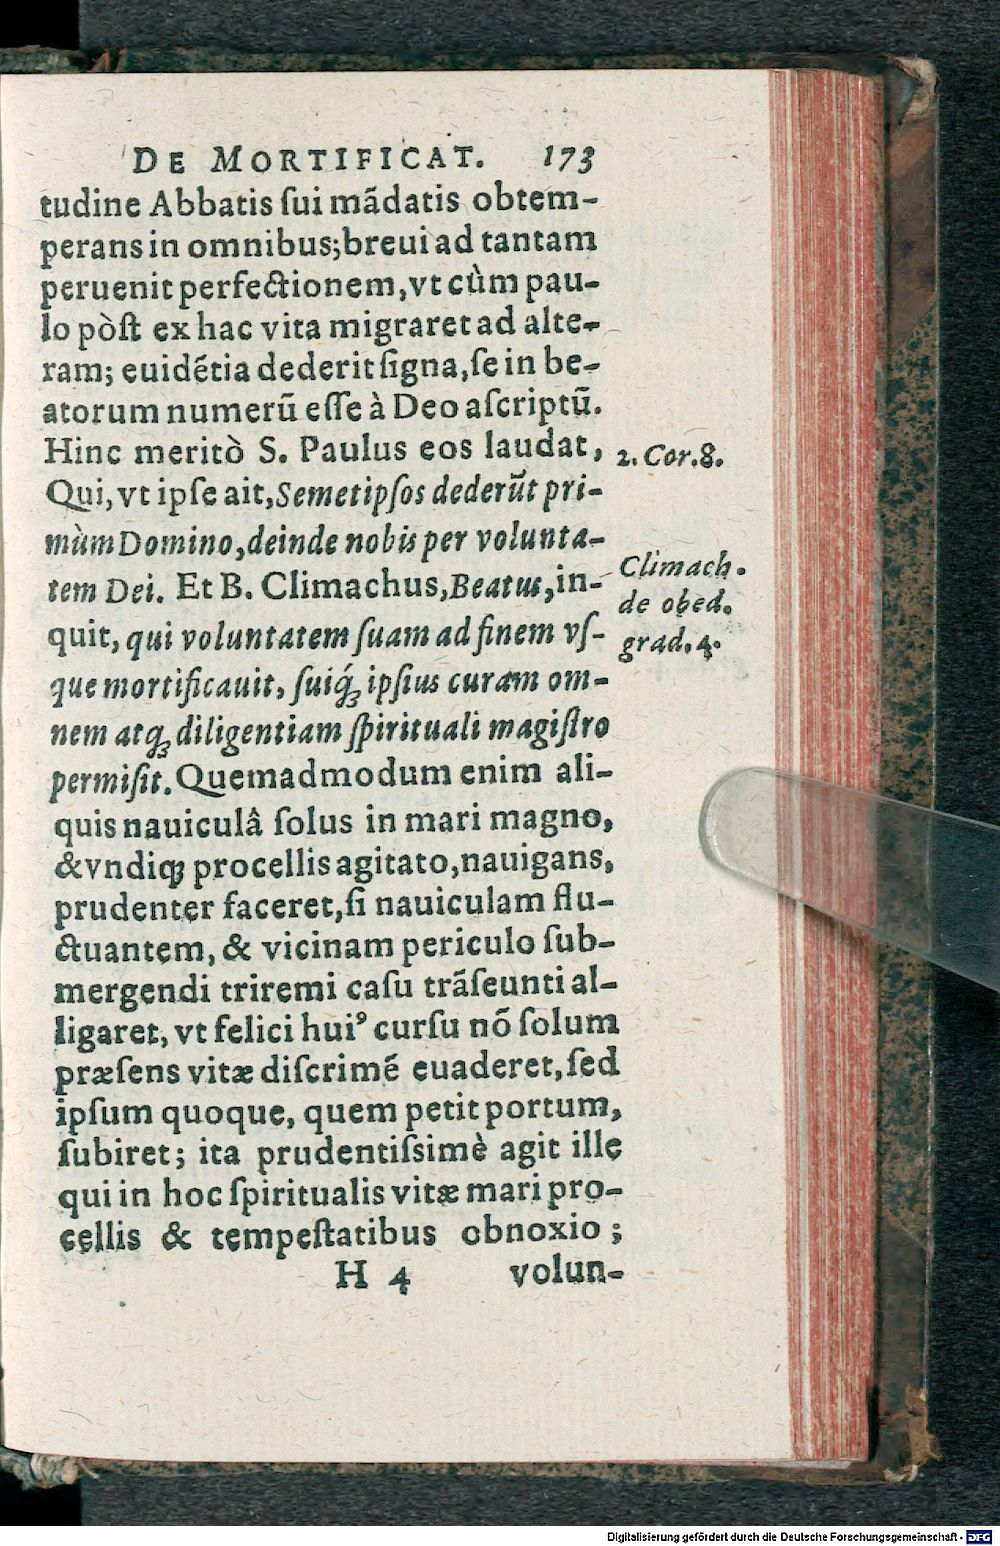 DE MORTIFICAT. 173
tudine Abbatis ſui mãdatis obtem-
perans in omnibus; breui ad tantam
peruenit perfectionem, vt cùm pau-
lo pòſt ex hac vita migraret ad alte-
ram; euidẽtia dederit ſigna, ſe in be-
atorum numerũ eſſe à Deo aſcriptũ.
Hinc meritò S. Paulus eos laudat,
2. Cor. 8.
Qui, vt ipſe ait, Semetipſos dederũt pri-
mùm Domino, deinde nobis per volunta-
tem Dei. Et B. Climachus, Beatus, in-
Climach.
de obed.
grad. 4.
quit, qui voluntatem ſuam ad finem vſ-
que mortificauit, ſuiq́ꝫ ipſius curam om-
nem atqꝫ diligentiam ſpirituali magiſtro
permiſit. Quemadmodum enim ali-
quis nauiculâ ſolus in mari magno,
& vndiqꝫ procellis agitato, nauigans,
prudenter faceret, ſi nauiculam flu-
ctuantem, & vicinam periculo ſub-
mergendi triremi caſu trãſeunti al-
ligaret, vt felici huiꝰ curſu nõ ſolum
præſens vitæ diſcrimẽ euaderet, ſed
ipſum quoque, quem petit portum,
ſubiret; ita prudentiſsimè agit ille
qui in hoc ſpiritualis vitæ mari pro-
cellis & tempeſtatibus obnoxio;
H 4 volun-
Digitalisierung gefördert durch die Deutsche Forschungsgemeinschaft - DFG